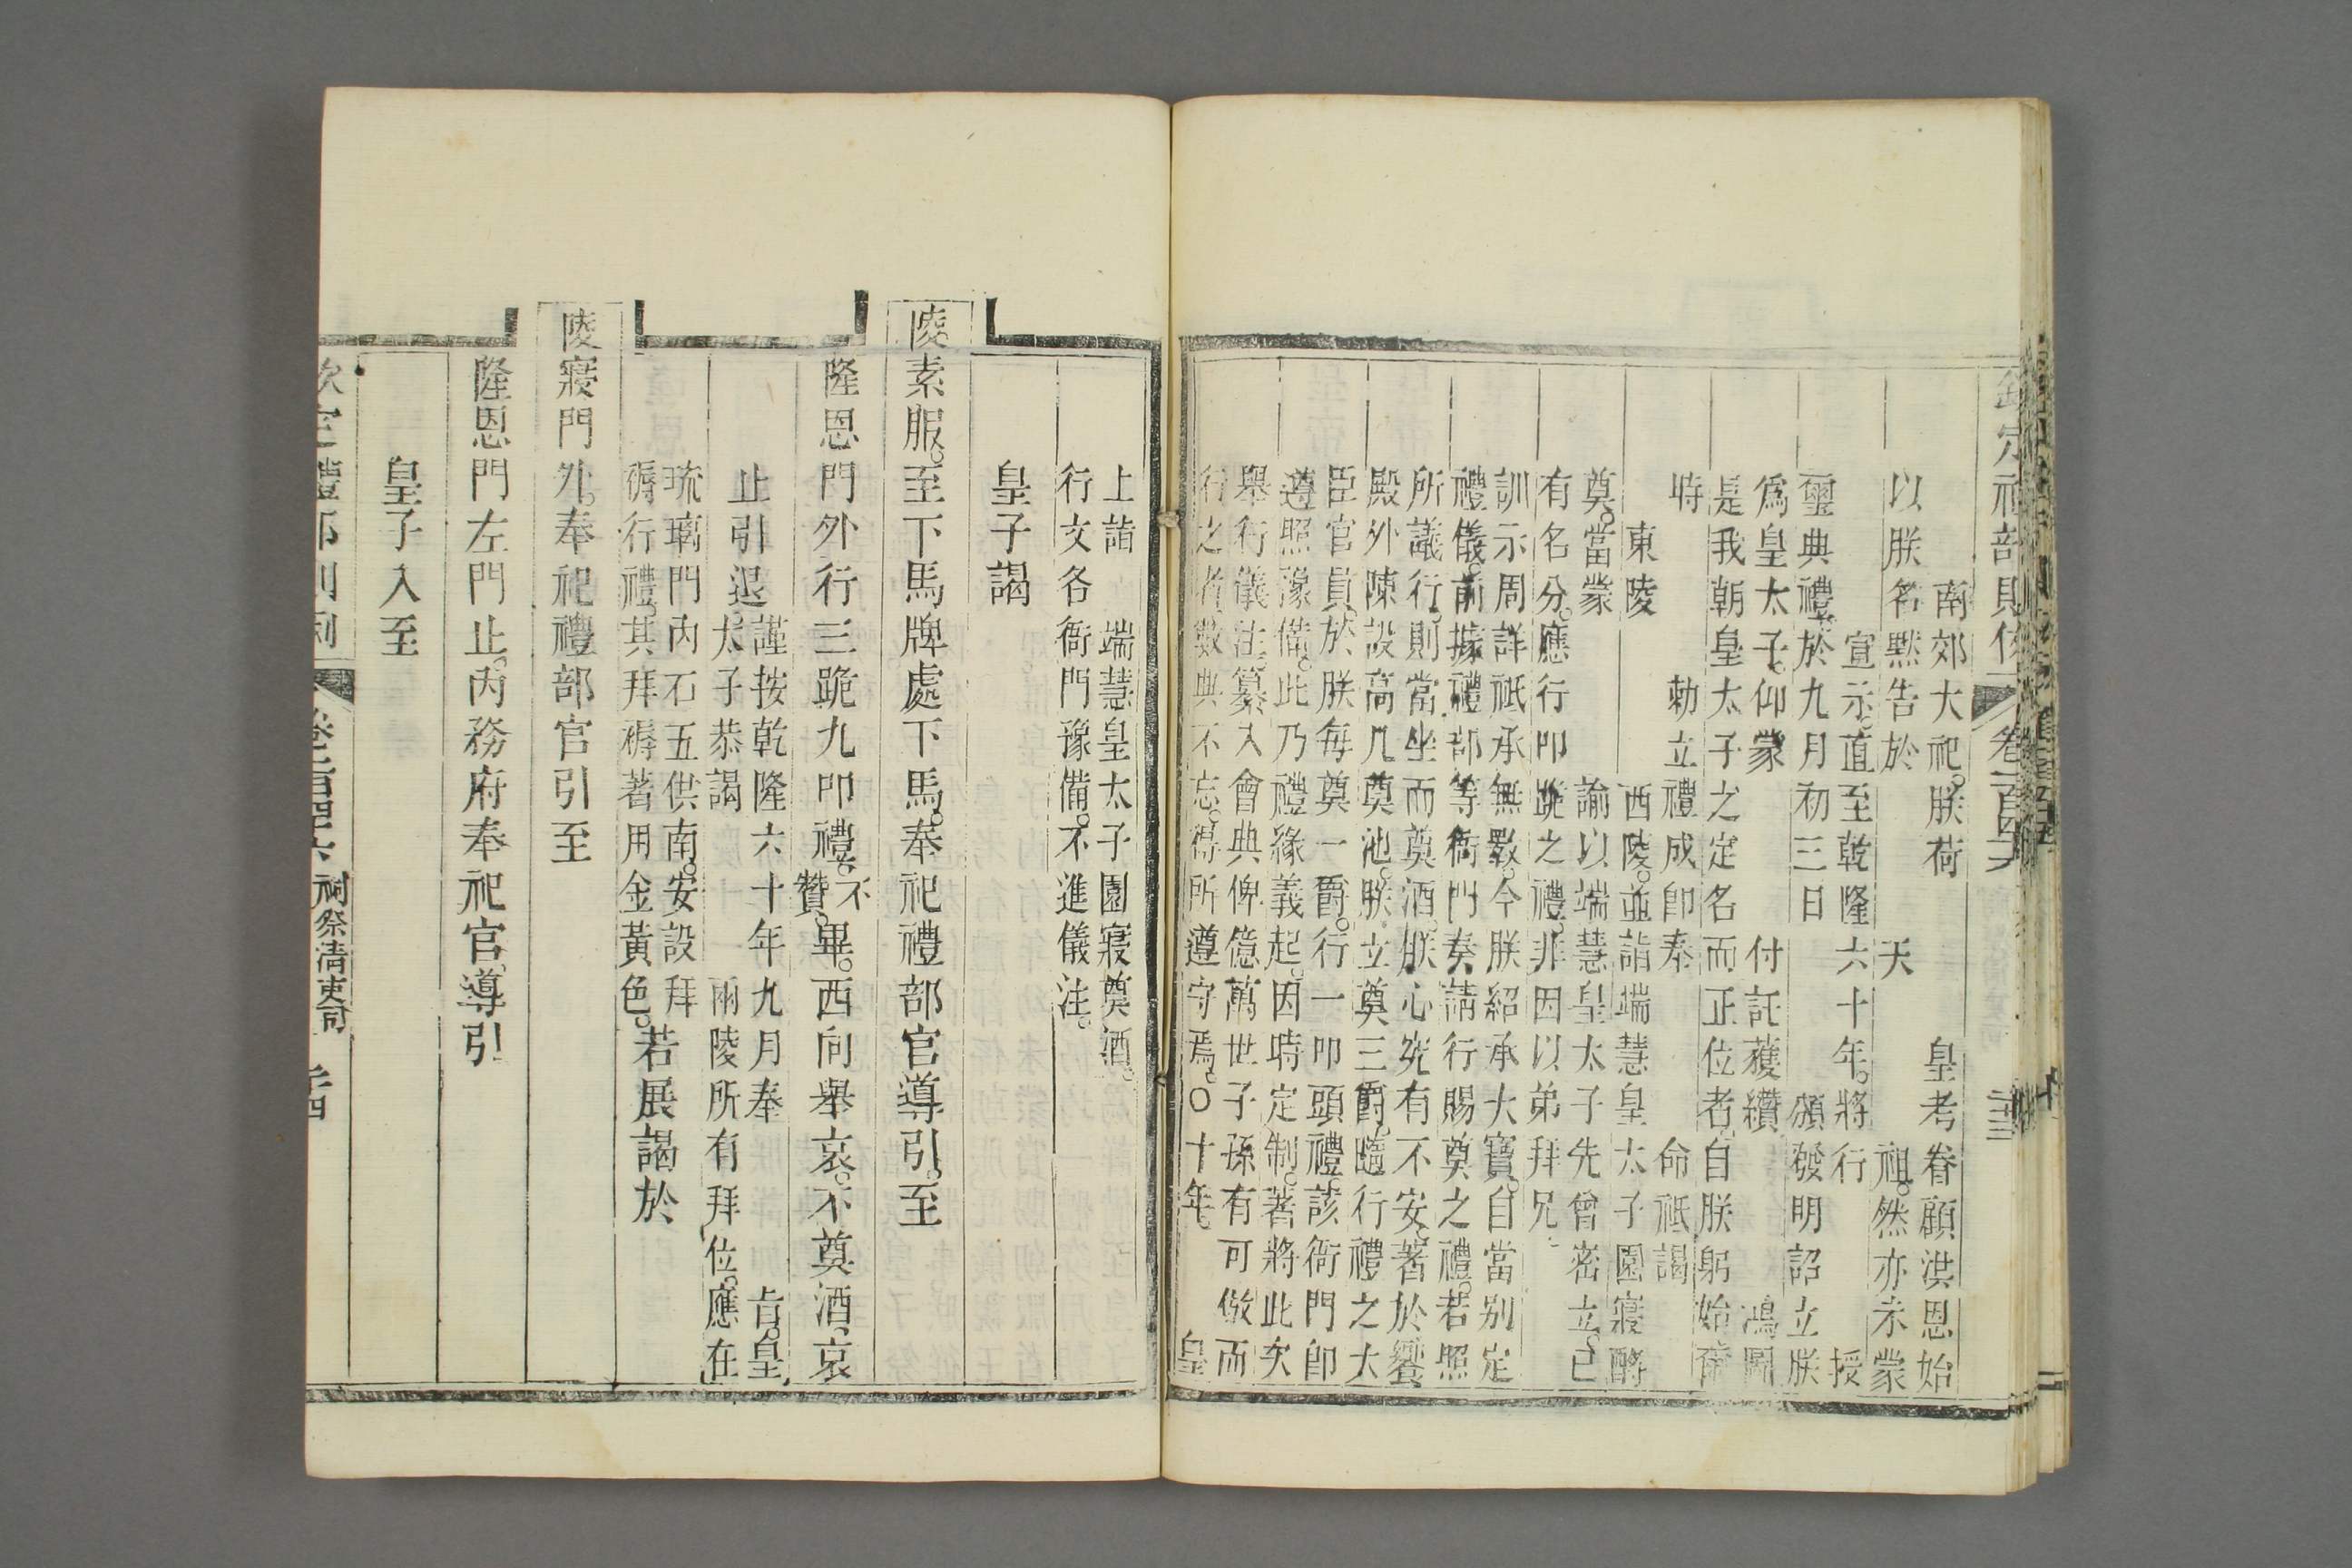 南郊大祀朕荷　皇考眷顧洪恩始
以朕名黙告於　天　祖然亦未蒙
宣示直至乾隆六十年將行　授
璽典禮於九月初三日　頒發明詔立朕
爲皇太子仰蒙　付託獲纘　鴻圖
是我朝皇太子之定名而正位者自朕躬始
時　勅立禮成卽奉　命祗謁
東陵　西陵並詣端慧皇太子園寢酹
奠當蒙　諭以端慧皇太子先曾密立已
有名分應行叩跪之禮非因以弟拜兄
訓示周詳祗承無斁今朕紹承大寶自當别定
禮儀前據禮部等衙門奏請行賜奠之禮若照
所議行則當坐而奠酒朕心究有不安著於饗
殿外陳設高几奠池朕立奠三爵隨行禮之大
臣官員於朕每奠一爵行一叩頭禮該衙門卽
遵照豫備此乃禮緣義起因時定制著將此次
舉行儀注纂入會典俾億萬世子孫有可倣而
行之者數典不忘得所遵守焉○十年　皇
上詣　端慧皇太子園寢奠酒
行文各衙門豫備不進儀注
皇子謁
陵素服至下馬牌處下馬奉祀禮部官導引至
隆恩門外行三跪九叩禮不贊畢西向舉哀不奠酒哀
止引退謹按乾隆六十年九月奉　旨皇
太子恭謁　兩陵所有拜位應在
琉璃門內石五供南安設拜
褥行禮其拜褥著用金黃色若展謁於
陵寢門外奉祀禮部官引至
隆恩門左門止內務府奉祀官導引
皇子入至
祠祭清吏司